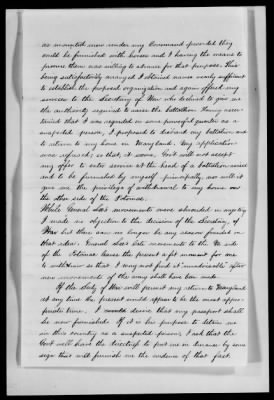 as mounted men under my Command provided they
could be furnished with horses and I having the means to
procure them was willing to advance for that purpose. This
being satisfactorily arranged I obtained names nearly sufficient
to establish the proposed organization and again offered my
services to the Secretary of War who declined to give me
the authority required to raise the battalion. Having ascer-
tained that I was regarded in some powerful quarter as a
suspected person, I proposed to disband my battalion and
to return to my home in Maryland. My application
was refused; so that, it seems, Govt will not accept
my offer to enter service at the head of a battalion raised
and to be furnished by myself principally, nor will it
give me the privilege of withdrawal to my home on
the other side of the Potomac.
While General Lee's movements were shrouded in mystery
I made no objection to the decision of the Secretary of
War but there can no longer be any reason founded on
that idea. General Lee's late movements to the Va side
of the Potomac leaves the present a fit moment for me
to withdraw so that I may not find it unadvisable after
new movements of the army shall have been made.
If the Secty of War will permit my return to Maryland
at any time the present would appear to be the most appro-
priate time. I would desire that my passport shall
be now furnished. If it is his purpose to detain me
in this country as a suspected person, I ask that the
Govt will have the directness to put me in durance by some
sign that will furnish me the evidence of that fact.